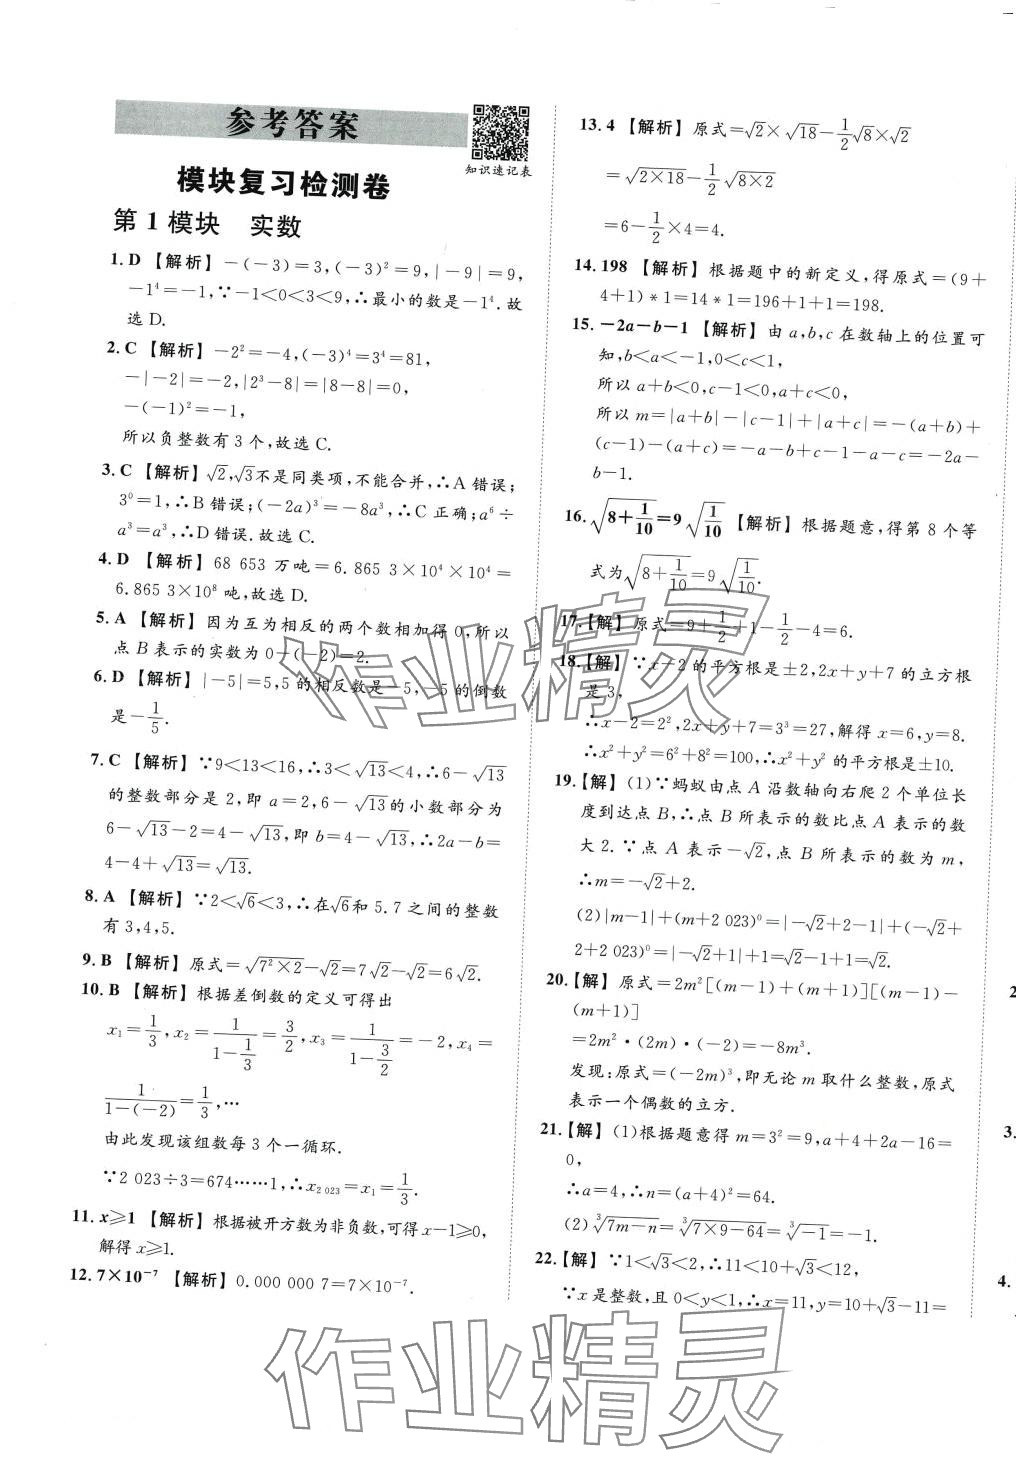 参考答案
知识速记表
模块复习检测卷
第1模块 实数
1. D 【解析】-(-3)=3,(-3)²=9,|-9|=9,
-1⁴=-1,∵-1<0<3<9,∴最小的数是-1⁴.故
选D.
2. C 【解析】-2²=-4,(-3)⁴=3⁴=81,
-|-2|=-2,|2³-8|=|8-8|=0,
-(-1)²=-1,
所以负整数有3个,故选C.
3. C 【解析】√2,√3不是同类项,不能合并,∴A错误;
3⁰=1,∴B错误;(-2a)³=-8a³,∴C正确;a⁶÷
a³=a³,∴D错误.故选C.
4. D 【解析】68 653万吨=6.865 3×10⁴×10⁴=
6.865 3×10⁸吨,故选D.
5. A 【解析】因为互为相反的两个数相加得0,所以
点B表示的实数为0-(-2)=2.
6. D 【解析】|-5|=5,5的相反数是-5,-5的倒数
是-1/5.
7. C 【解析】∵9<13<16,∴3<√13<4,∴6-√13
的整数部分是2,即a=2,6-√13的小数部分为
6-√13-2=4-√13,即b=4-√13,∴2a-b=
4-4+√13=√13.
8. A 【解析】∵2<√6<3,∴在√6和5.7之间的整数
有3,4,5.
9. B 【解析】原式=√(7²×2)-√2=7√2-√2=6√2.
10. B 【解析】根据差倒数的定义可得出
x₁=1/3,x₂=1/(1-1/3)=3/2,x₃=1/(1-3/2)=-2,x₄=
1/(1-(-2))=1/3,…
由此发现该组数每3个一循环.
∵2 023÷3=674……1,∴x₂ ₀₂₃=x₁=1/3.
11. x≥1 【解析】根据被开方数为非负数,可得x-1≥0,
解得x≥1.
12. 7×10⁻⁷ 【解析】0.000 000 7=7×10⁻⁷.
13. 4 【解析】原式=√2×√18-1/2√8×√2
=√(2×18)-1/2√(8×2)
=6-1/2×4=4.
14. 198 【解析】根据题中的新定义,得原式=(9+
4+1)*1=14*1=196+1+1=198.
15. -2a-b-1 【解析】由a,b,c在数轴上的位置可
知,b<a<-1,0<c<1,
所以a+b<0,c-1<0,a+c<0,
所以m=|a+b|-|c-1|+|a+c|=-(a+b)+
(c-1)-(a+c)=-a-b+c-1-a-c=-2a-
b-1.
16. √(8+1/10)=9√(1/10) 【解析】根据题意,得第8个等
式为√(8+1/10)=9√(1/10).
17.【解】原式=9+1/2+1-1/2-4=6.
18.【解】∵x-2的平方根是±2,2x+y+7的立方根
是3,
∴x-2=2²,2x+y+7=3³=27,解得x=6,y=8.
∴x²+y²=6²+8²=100,∴x²+y²的平方根是±10.
19.【解】(1)∵蚂蚁由点A沿数轴向右爬2个单位长
度到达点B,∴点B所表示的数比点A表示的数
大2.∵点A表示-√2,点B所表示的数为m,
∴m=-√2+2.
(2)|m-1|+(m+2 023)⁰=|-√2+2-1|+(-√2+
2+2 023)⁰=|-√2+1|+1=√2-1+1=√2.
20.【解】原式=2m²[(m-1)+(m+1)][(m-1)-
(m+1)]
=2m²·(2m)·(-2)=-8m³.
发现:原式=(-2m)³,即无论m取什么整数,原式
表示一个偶数的立方.
21.【解】(1)根据题意得m=3²=9,a+4+2a-16=
0,
∴a=4,∴n=(a+4)²=64.
(2)∛(7m-n)=∛(7×9-64)=∛(-1)=-1.
22.【解】∵1<√3<2,∴11<10+√3<12,
∵x是整数,且0<y<1,∴x=11,y=10+√3-11=
2
3.
4.
作业精灵
作业精灵